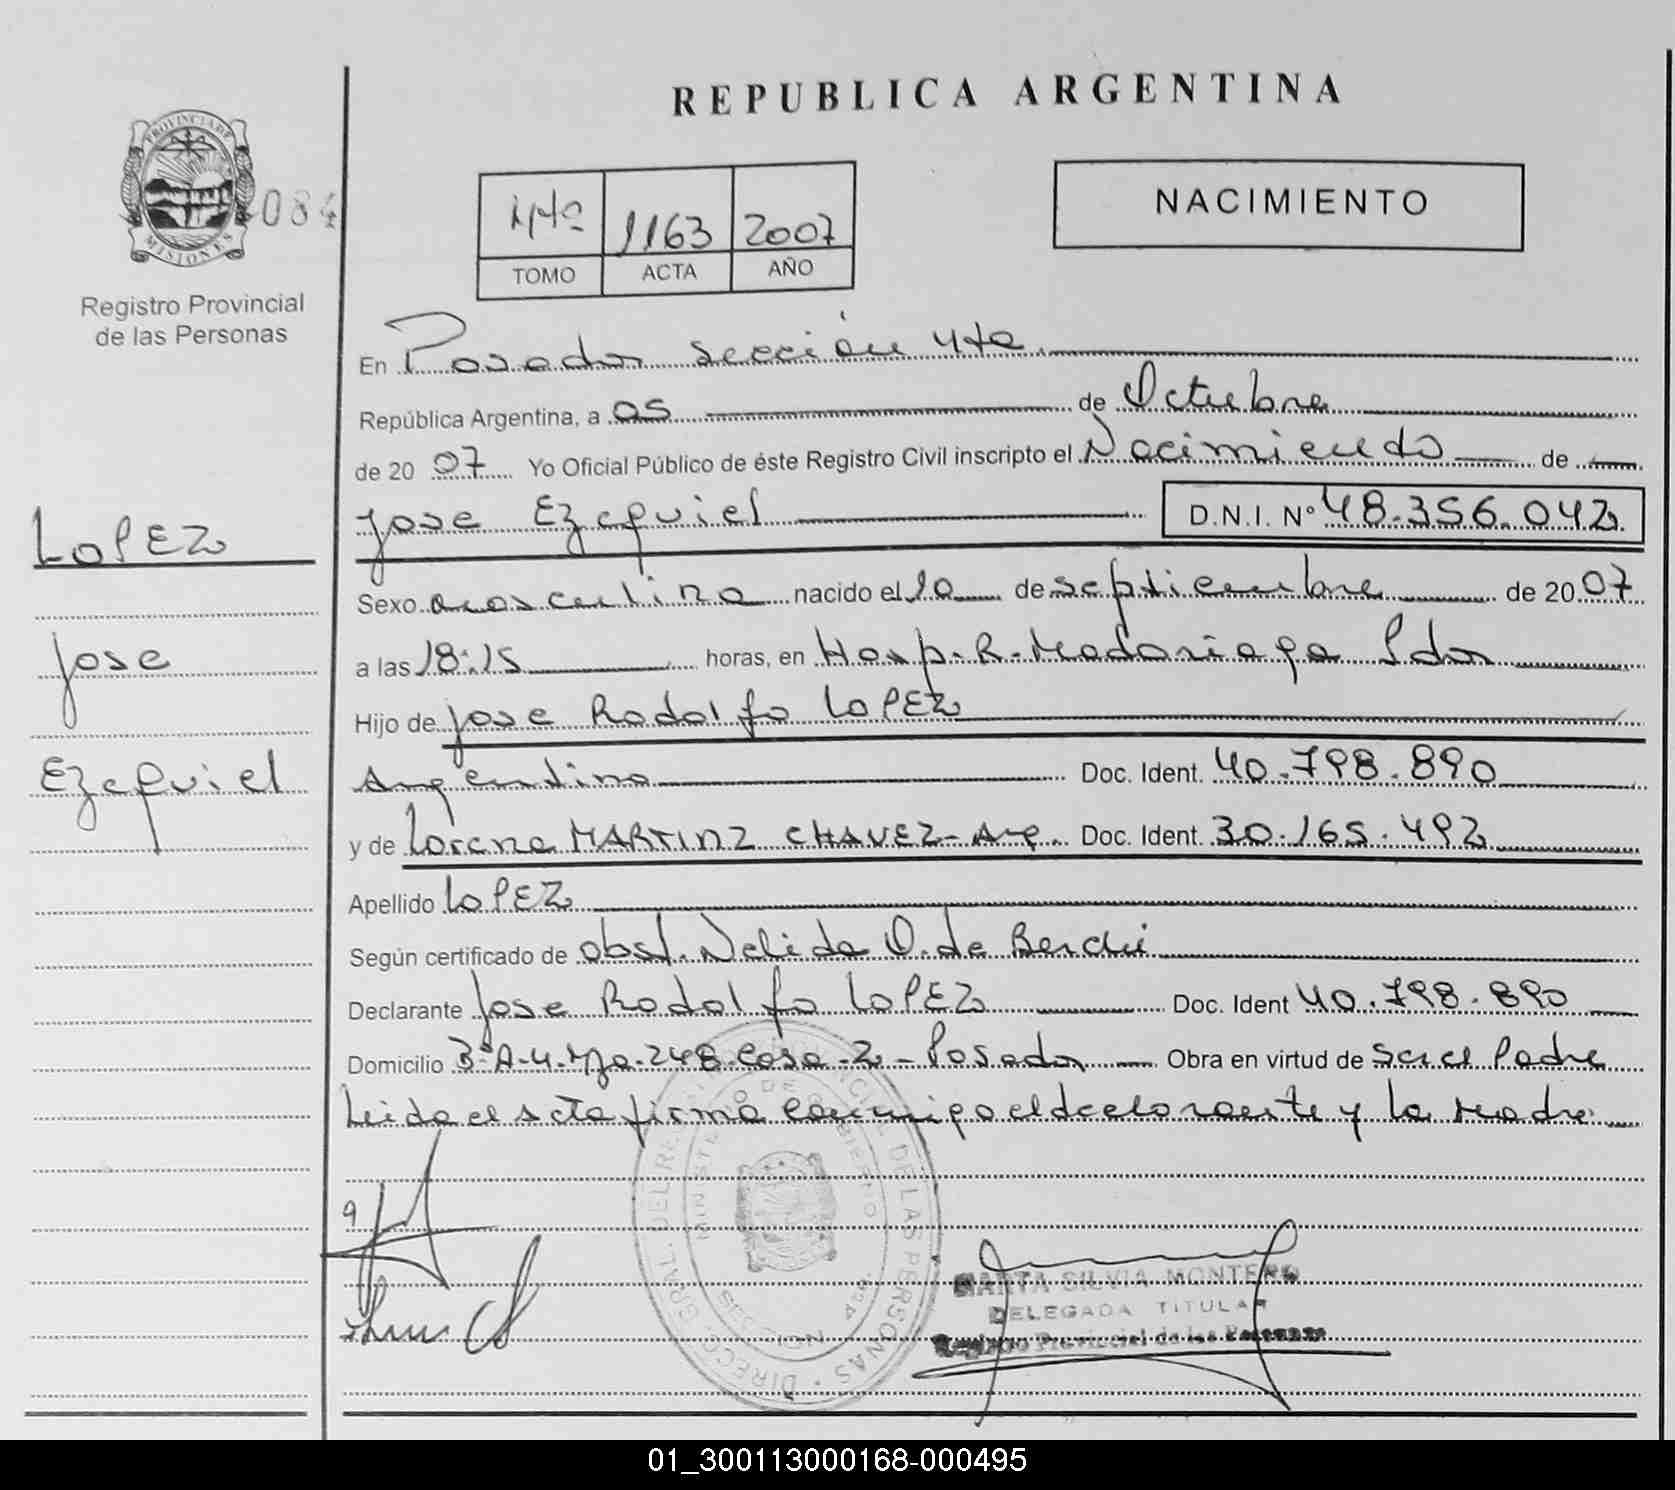 REPUBLICA ARGENTINA
PROVINCIA DE
MISIONES
084
Registro Provincial
de las Personas
1163 2007
TOMO ACTA AÑO
NACIMIENTO
En Posadas sección 4ta
República Argentina, a 05 de Octubre
de 2007 Yo Oficial Público de éste Registro Civil inscripto el Nacimiento de
Jose Ezequiel D.N.I. Nº 48.356.042
LOPEZ
Jose
Ezequiel
Sexo masculino nacido el 10 de septiembre de 2007
a las 18:15 horas, en Hosp. R. Madariaga Pdas
Hijo de Jose Rodolfo LOPEZ
Argentino Doc. Ident. 40.798.890
y de Lorena MARTINZ CHAVEZ - Arg. Doc. Ident. 30.165.492
Apellido LOPEZ
Según certificado de obst. Nelida O. de
Declarante Jose Rodolfo LOPEZ Doc. Ident 40.798.890
Domicilio 248 casa 2 - Posadas Obra en virtud de ser el Padre
Leida el acta firma conmigo el declarante y la Madre
DIRECC. GRAL. DEL REGISTRO PROVINCIAL DE LAS PERSONAS
MINISTERIO DE GOBIERNO
MISIONES
MARTA SILVIA MONTERO
DELEGADA TITULAR
Registro Provincial de las Personas
01_300113000168-000495